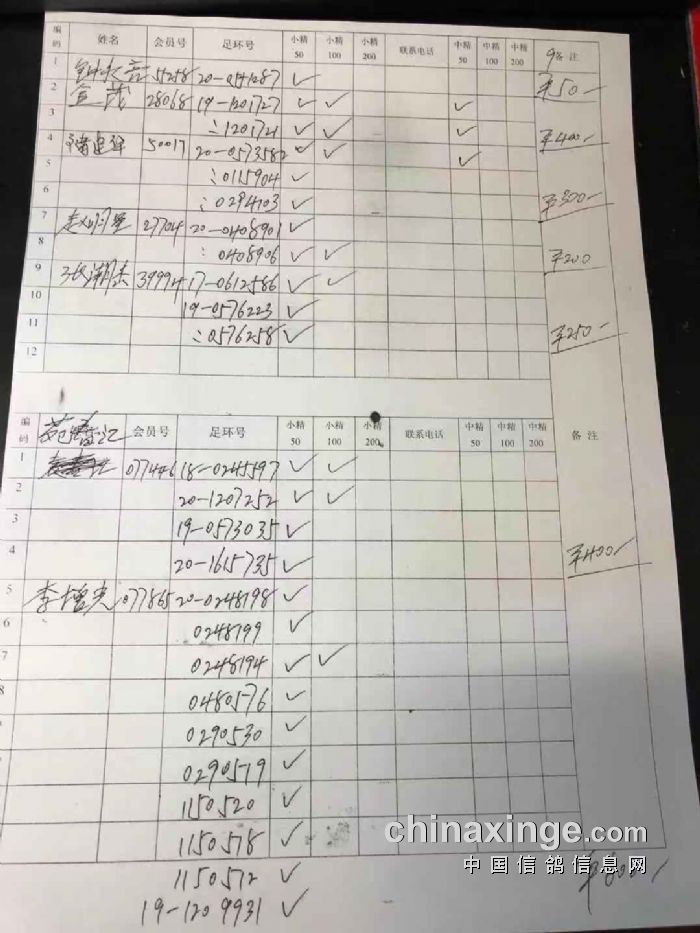 编码 姓名 会员号 足环号 小精50 小精100 小精200 联系电话 中精50 中精100 中精200 备注
1 55258 20-0541287 ✓ ¥50-
2 金茂 28068 19-1201727 ✓ ✓ ✓
3 :1201721 ✓ ✓ ✓ ¥400-
4 50017 20-0573582 ✓ ✓ ✓
5 :0115904 ✓
6 :0294103 ✓ ¥300-
7 27704 20-0408901 ✓
8 :0408906 ✓ ✓ ¥200
9 39994 17-0612586 ✓ ✓
10 19-0576223 ✓
11 :0576258 ✓ ¥250-
12
编码 会员号 足环号 小精50 小精100 小精200 联系电话 中精50 中精100 中精200 备注
1 077446 18-0245597 ✓ ✓
2 20-1207252 ✓ ✓
3 19-0573035 ✓
4 20-1615735 ✓ ¥400-
5 李增光 077865 20-0248198 ✓
6 0248199 ✓
7 0248194 ✓ ✓
8 0480576 ✓
0290530 ✓
0290579 ✓
1150520 ✓
1150578 ✓
1150512 ✓
19-1209931 ✓
chinaxinge.com
中国信鸽信息网